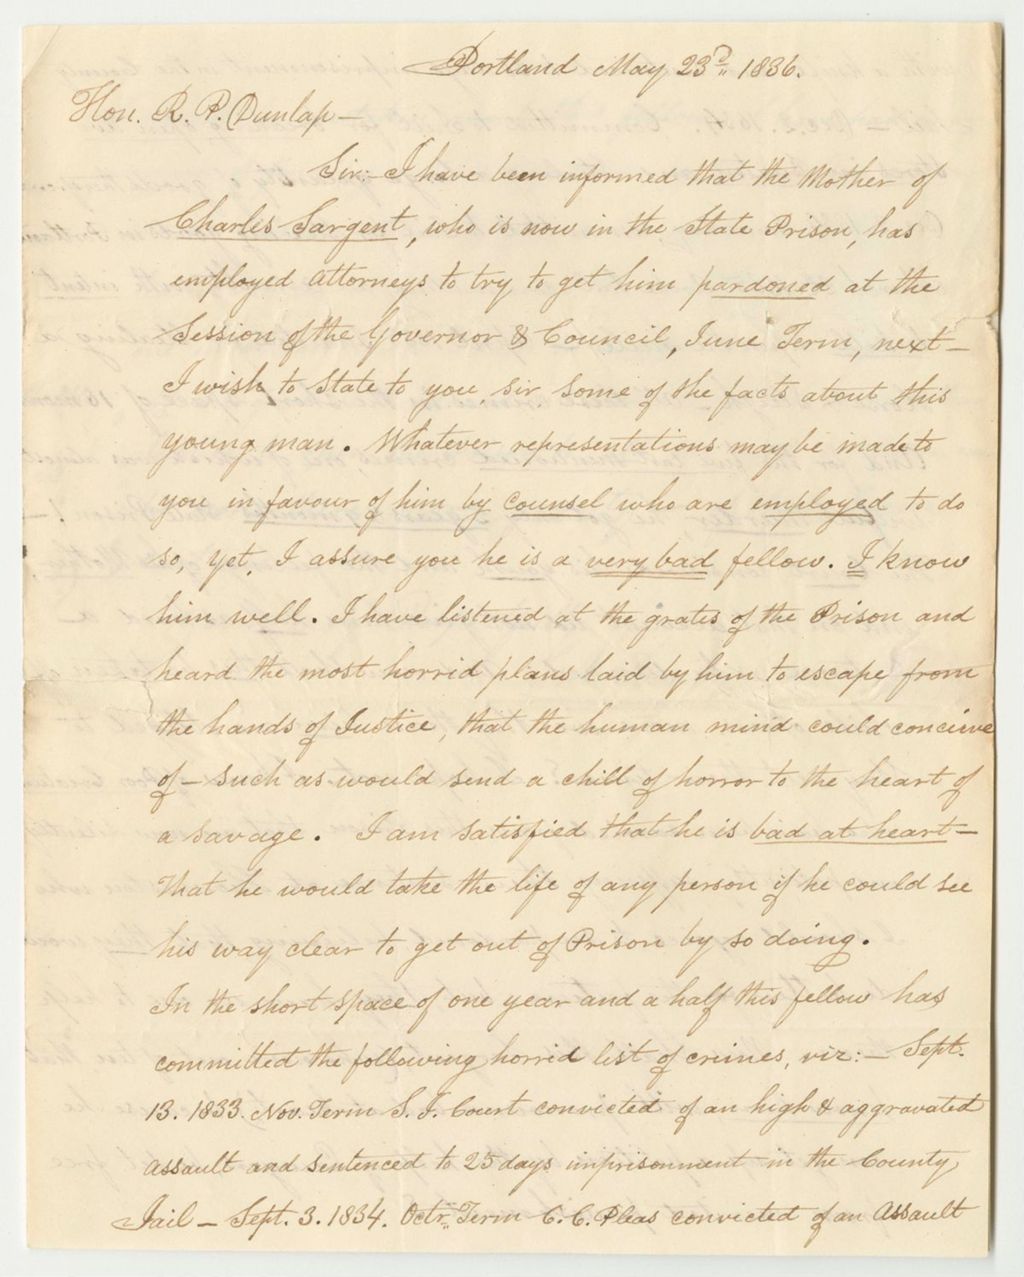 Portland May 23d. 1836.
Hon. R. P. Dunlap —
Sir:— I have been informed that the Mother of
Charles Sargent, who is now in the State Prison, has
employed Attorneys to try to get him pardoned at the
Session of the Governor & Council, June Term, next —
I wish to state to you, sir some of the facts about this
young man. Whatever representations may be made to
you in favour of him by counsel who are employed to do
so, yet, I assure you he is a very bad fellow. I know
him well. I have listened at the grates of the Prison and
heard the most horrid plans laid by him to escape from
the hands of Justice, that the human mind could conceive
of — such as would send a chill of horror to the heart of
a savage. I am satisfied that he is bad at heart —
that he would take the life of any person if he could see
his way clear to get out of Prison by so doing.
In the short space of one year and a half this fellow has
committed the following horrid list of crimes, viz: — Sept.
13. 1833. Nov. Term S. J. Court convicted of an high & aggravated
assault and sentenced to 25 days imprisonment in the County
Jail — Sept. 3. 1834. Octr. Term C. C. Pleas convicted of an Assault